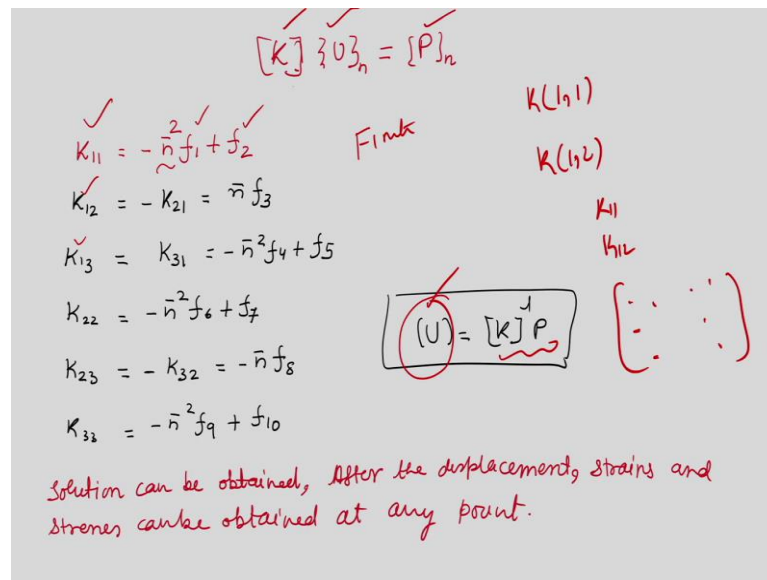 [K] {U}ₙ = {P}ₙ
K₁₁ = - n̄² f₁ + f₂
K₁₂ = - K₂₁ = n̄ f₃
K₁₃ = K₃₁ = - n̄² f₄ + f₅
K₂₂ = - n̄² f₆ + f₇
K₂₃ = - K₃₂ = - n̄ f₈
K₃₃ = - n̄² f₉ + f₁₀
K(1,1)
K(1,2)
K11
K12
(U) = [K]⁻¹ P
Solution can be obtained, After the displacement, strains and
stresses can be obtained at any point.